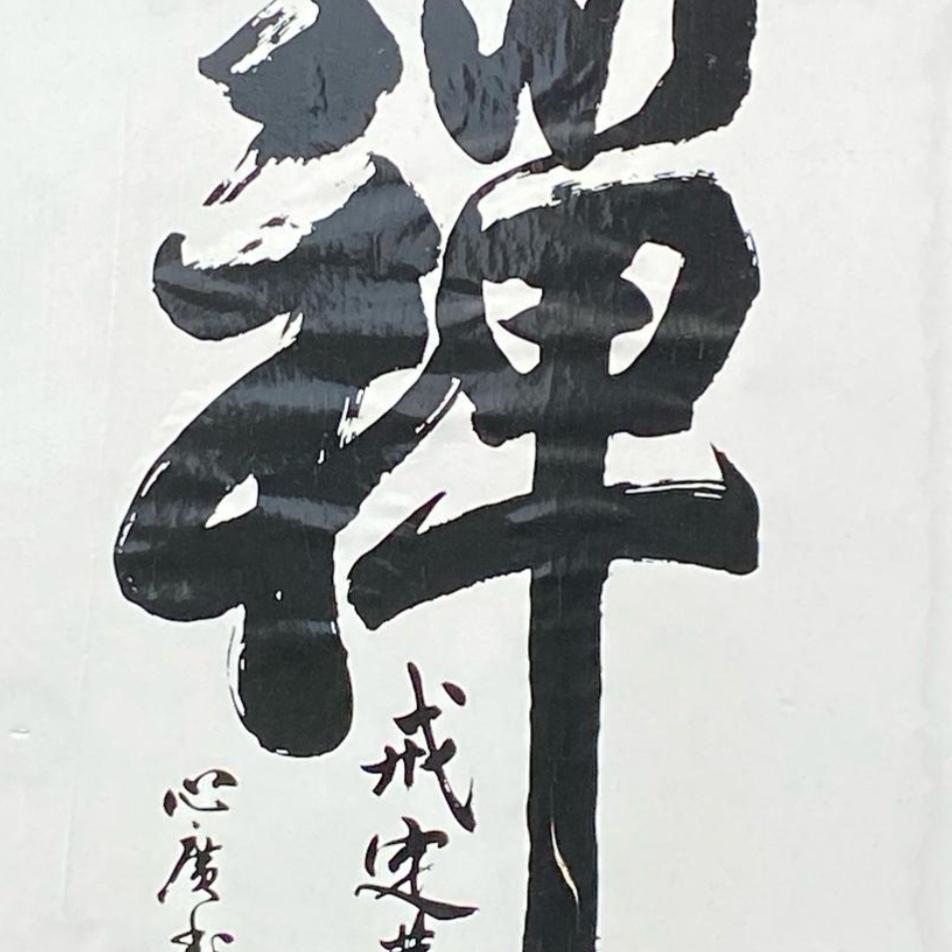 禪
戒定
心廣書